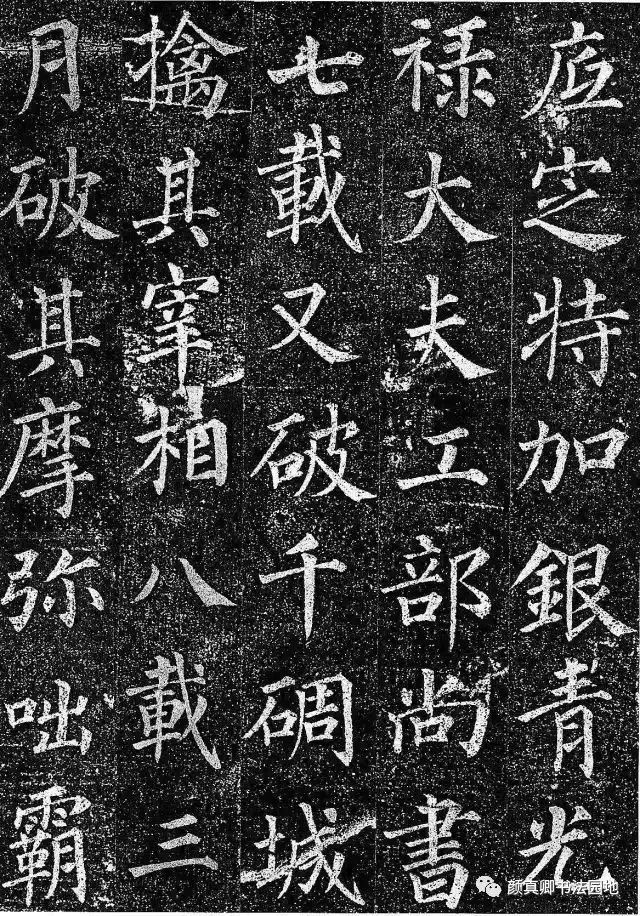 底定特加銀青光
禄大夫工部尚書
七載又破千碉城
擒其宰相八載三
月破其摩弥咄霸
颜真卿书法园地